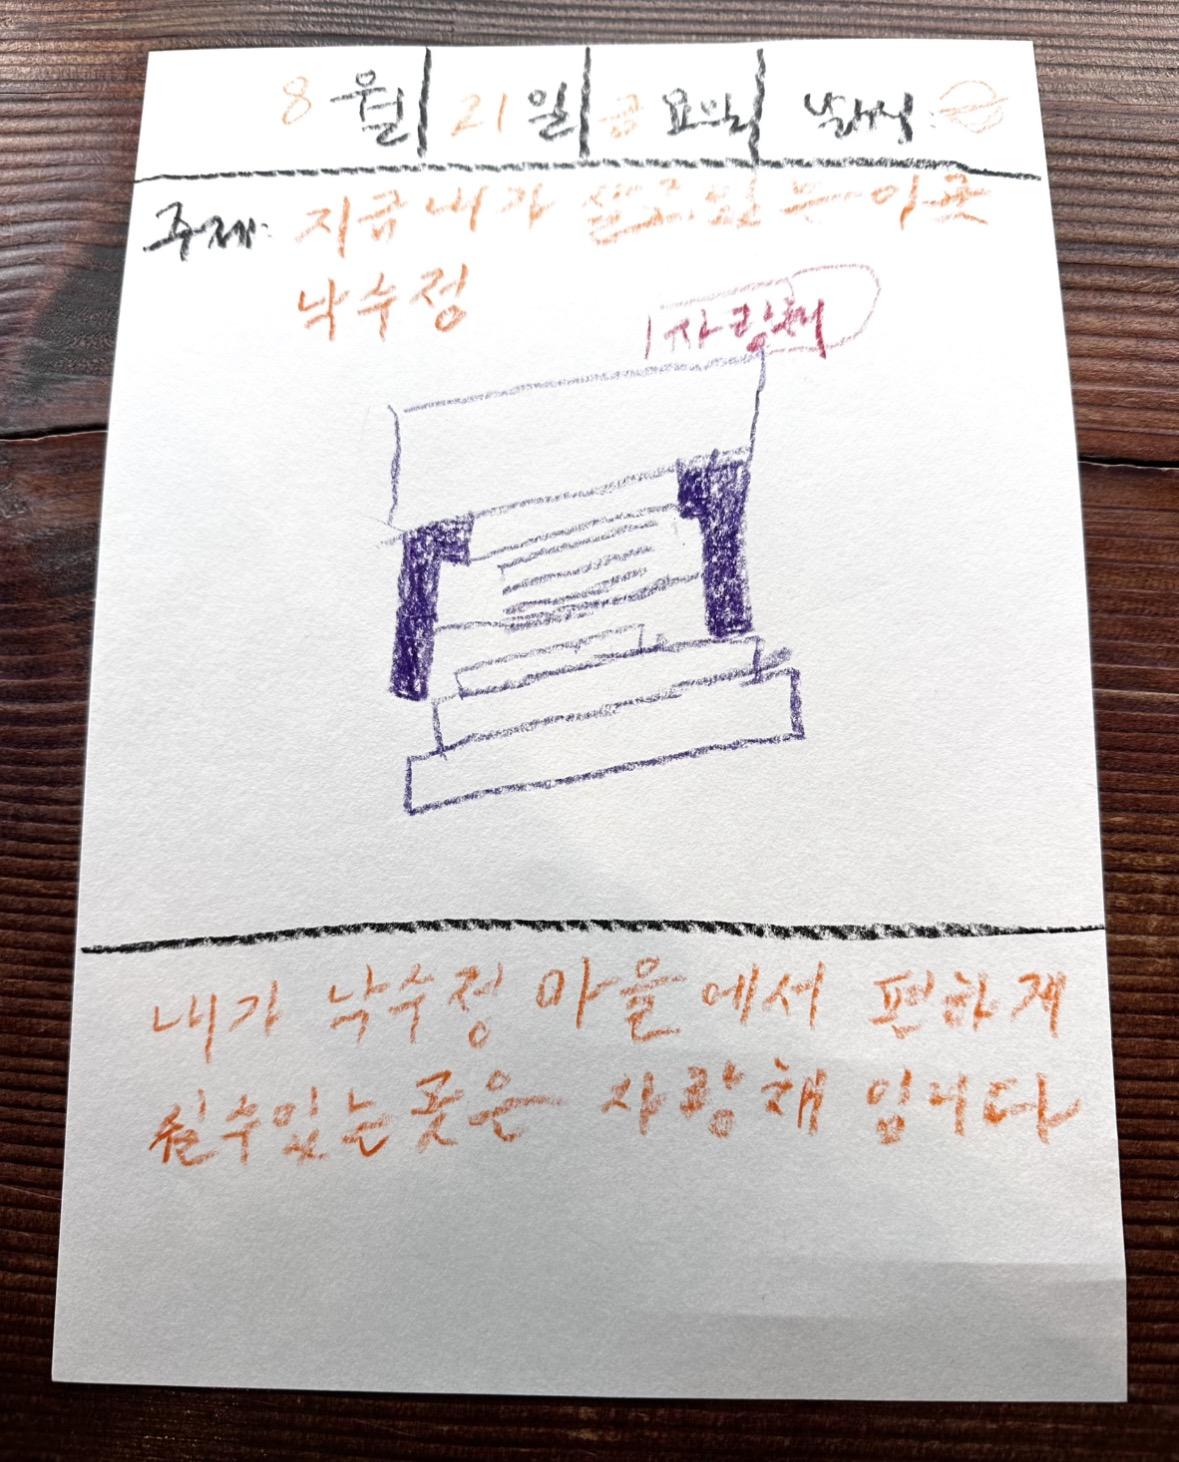 8월 21일 금요일 날씨:
주제: 지금 내가 살고 있는 이곳
낙수정
사랑채
내가 낙수정 마을에서 편하게
쉴수있는곳은 사랑채 입니다